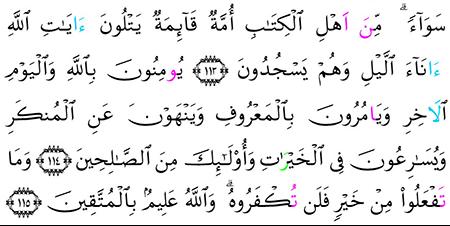 سَوَآءٗۗ مِّنَ اَهْلِ ٱلْكِتَٰبِ أُمَّةٞ قَآئِمَةٞ يَتْلُونَ ءَايَٰتِ ٱللَّهِ
ءَانَآءَ ٱلَّيْلِ وَهُمْ يَسْجُدُونَ ١١٣ يُومِنُونَ بِٱللَّهِ وَٱلْيَوْمِ
ٱلَاخِرِ وَيَامُرُونَ بِٱلْمَعْرُوفِ وَيَنْهَوْنَ عَنِ ٱلْمُنكَرِ
وَيُسَٰرِعُونَ فِى ٱلْخَيْرَٰتِ وَأُوْلَٰٓئِكَ مِنَ ٱلصَّٰلِحِينَ ١١٤ وَمَا
تَفْعَلُواْ مِنْ خَيْرٖ فَلَن تُكْفَرُوهُۗ وَٱللَّهُ عَلِيمُۢ بِٱلْمُتَّقِينَ ١١٥